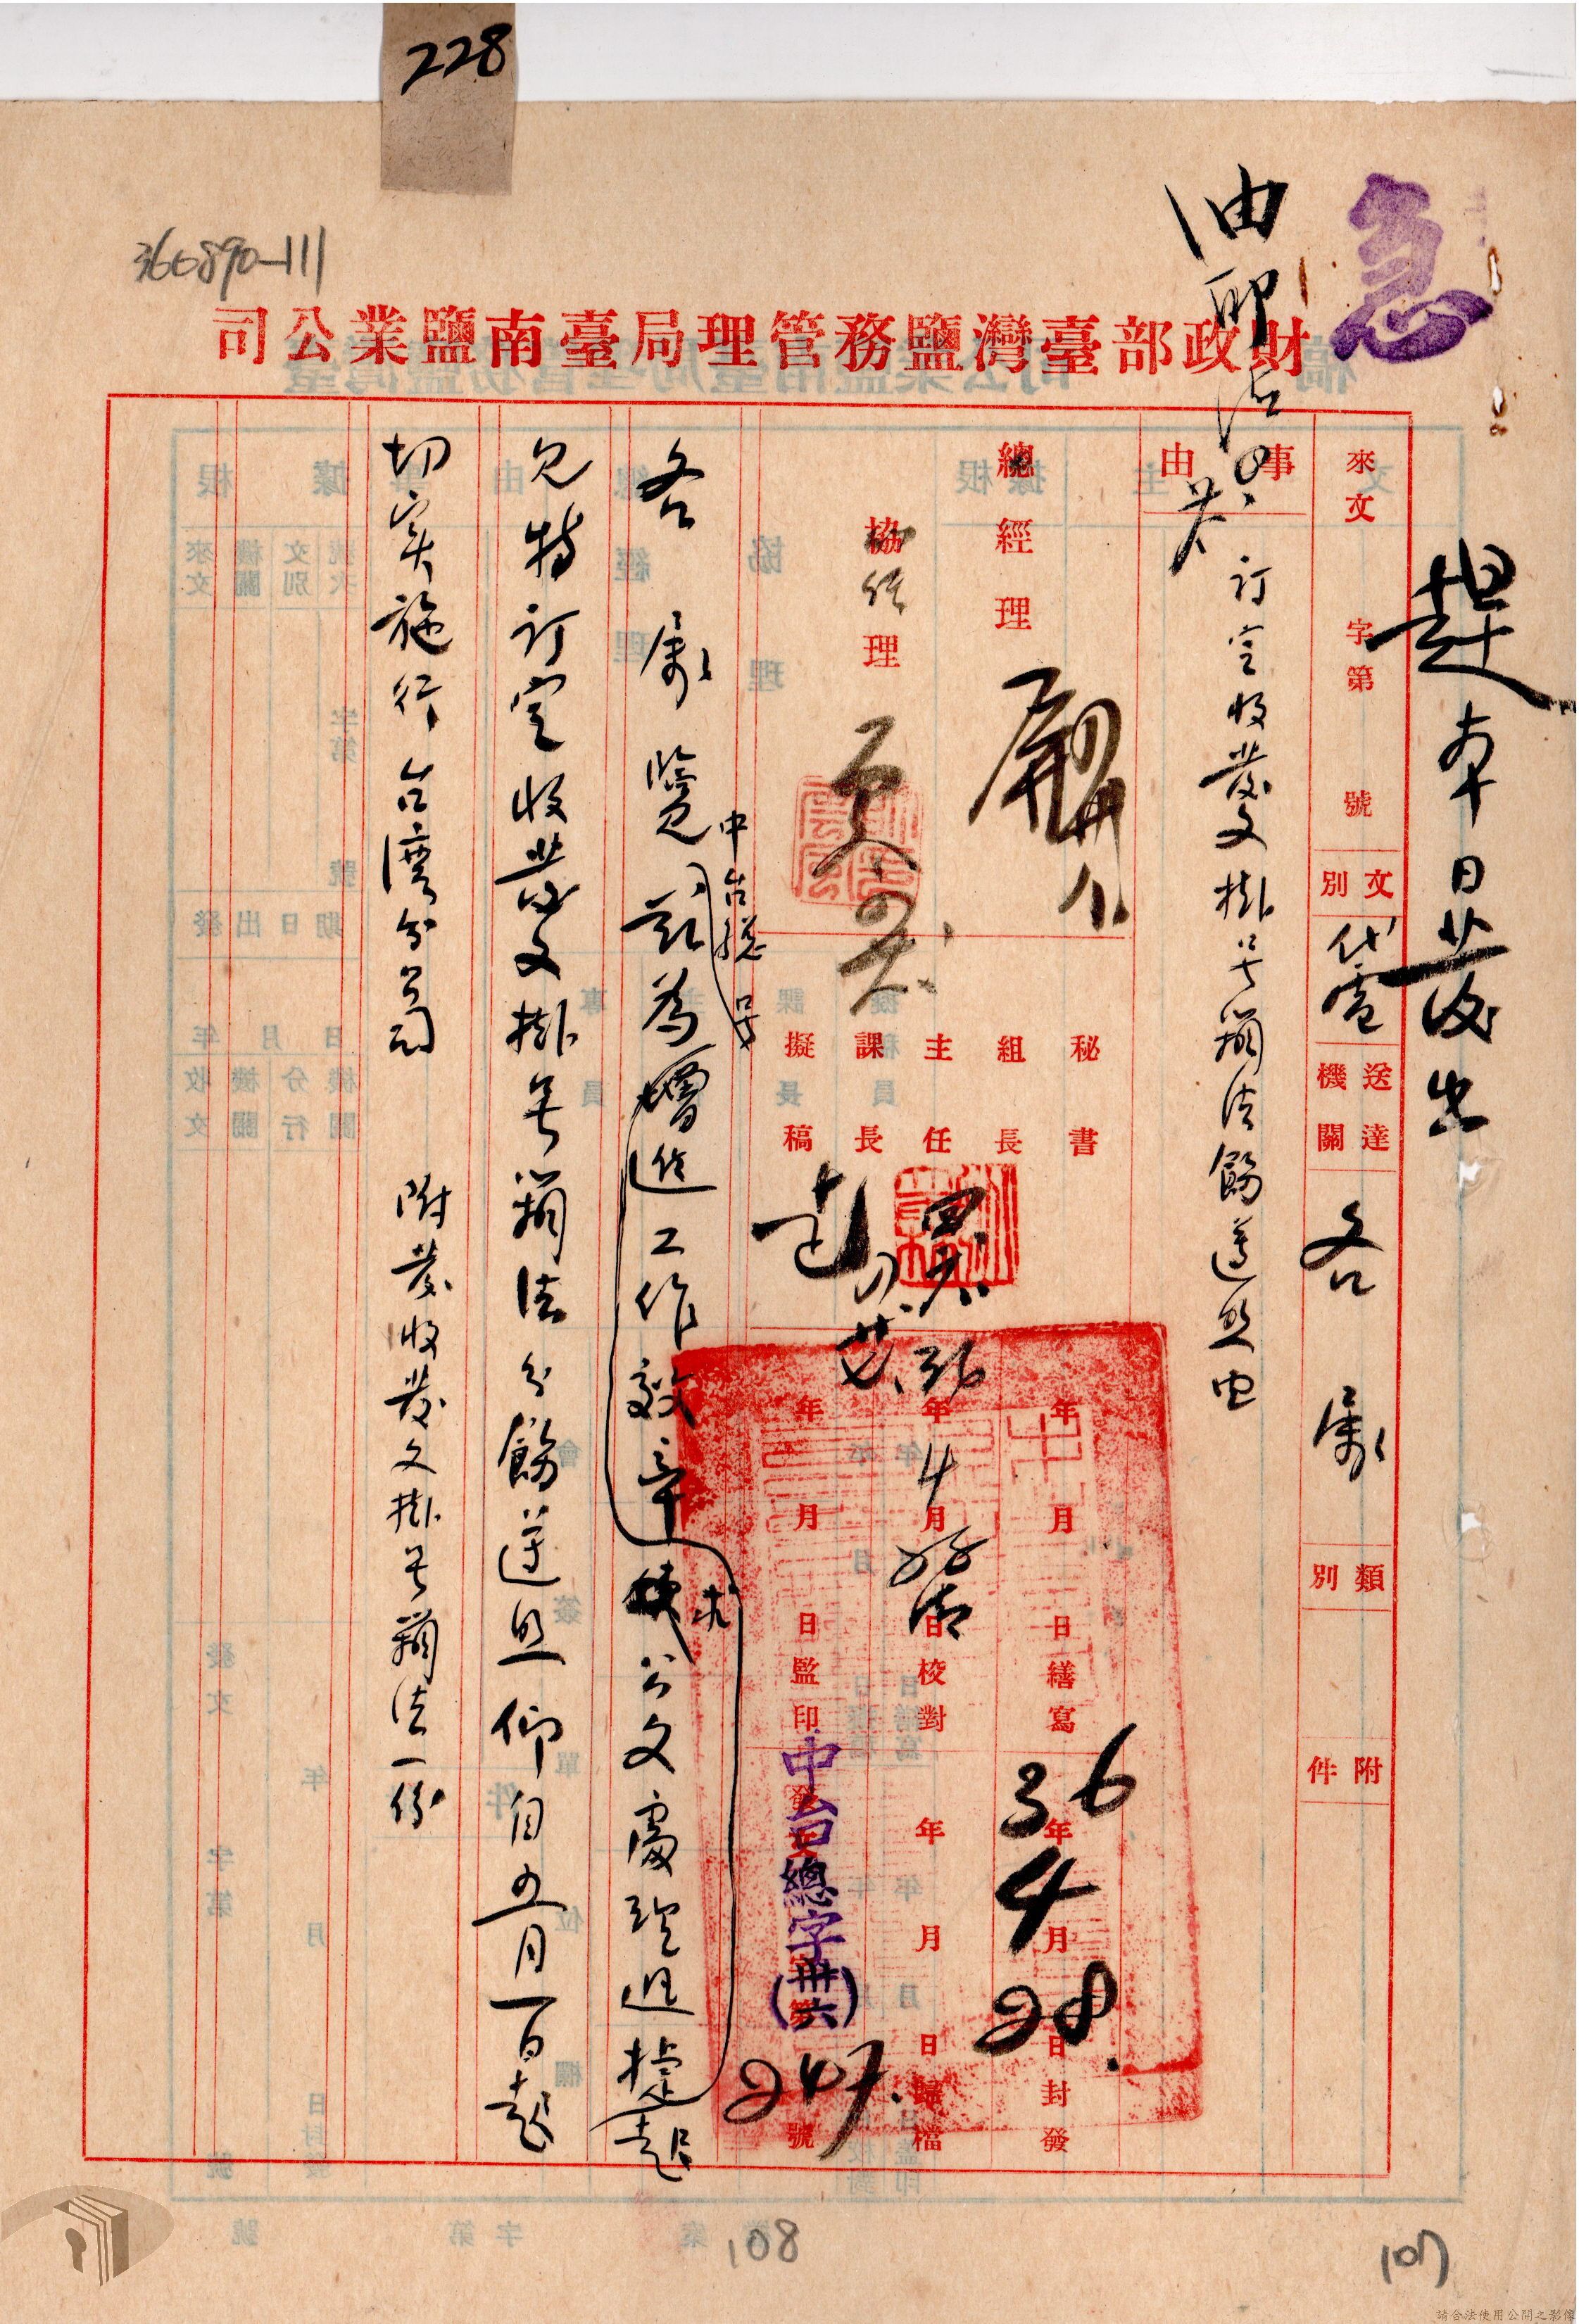 228
366890-111
急
油印
趕本日發出
財政部臺灣鹽務管理局臺南鹽業公司
來文 字第 號
文別 代電
送達機關 各屬
類別
附件
事由 訂定收發文掛号編法飭遵照由
總經理
協理
秘書
組長
主任
課長
擬稿
年 月 日繕寫
年4月 日校對
年 月 日監印
36年4月28日封發
年 月 日歸檔
中台總字(卅六)247號
各屬覽
中台總 号
茲為增進工作效率
求公文處理迅捷起
見特訂定收發文掛号編法分飭遵照仰自五月一日起
切实施行台湾分公司 附發收發文掛号編法一份
108
107
請合法使用公開之影像